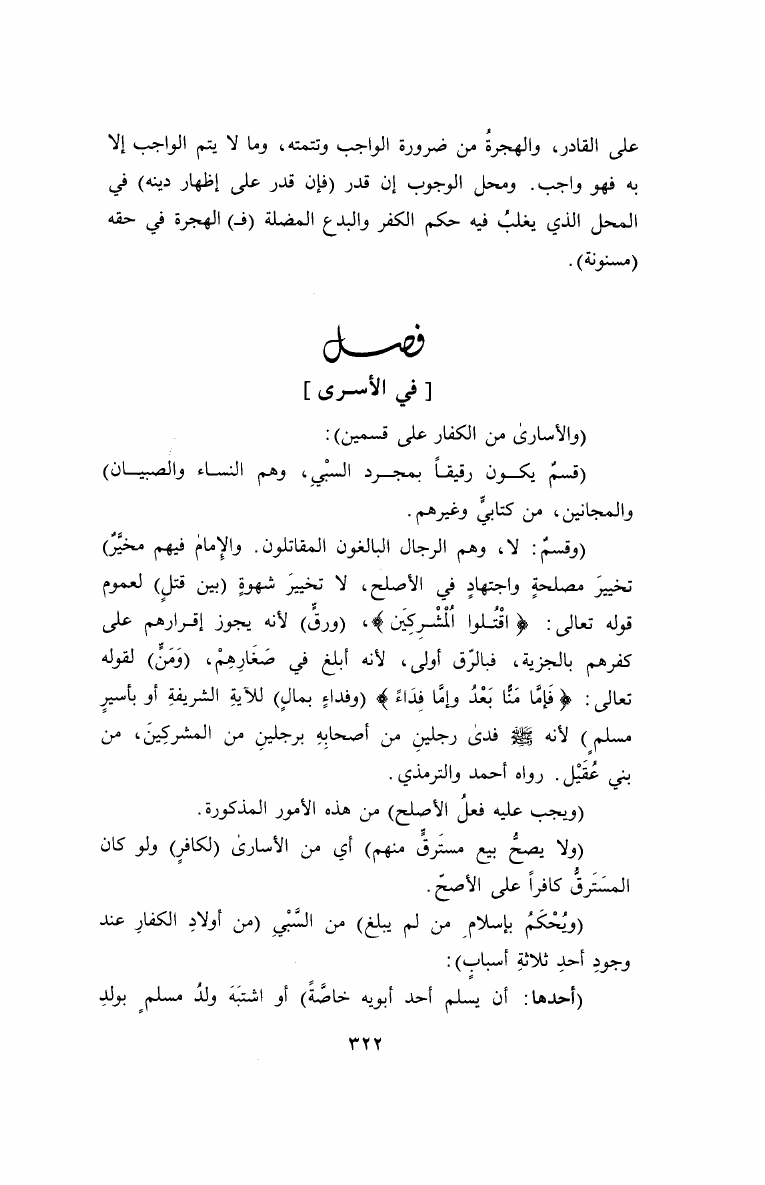 على القادر، والهجرةُ من ضرورة الواجب وتتمته، وما لا يتم الواجب إلا
به فهو واجب. ومحل الوجوب إن قدر (فإن قدر على إظهار دينه) في
المحل الذي يغلبُ فيه حكم الكفر والبدع المضلة (فـ) الهجرة في حقه
(مسنونة).
فصل
[ في الأسرى ]
(والأسارىٰ من الكفار على قسمين):
(قسمٌ يكون رقيقاً بمجرد السبْي، وهم النساء والصبيان)
والمجانين، من كتابيٍّ وغيرهم.
(وقسمٌ: لا، وهم الرجال البالغون المقاتلون. والإمامُ فيهم مخيَّرٌ)
تخييرَ مصلحةٍ واجتهادٍ في الأصلح، لا تخييرَ شهوةٍ (بين قتلٍ) لعموم
قوله تعالى: ﴿ اقْتُلوا اُلْمُشْرِكَين ﴾، (ورقٍّ) لأنه يجوز إقرارهم على
كفرهم بالجزية، فبالرّق أولى، لأنه أبلغ في صَغَارِهِمْ، (وَمَنٍّ) لقوله
تعالى: ﴿ فَإِمَّا مَنًّا بَعْدُ وإمَّا فِدَاءً ﴾ (وفداءٍ بمالٍ) للآيةِ الشريفةِ أو بأسيرٍ
مسلمٍ) لأنه ﷺ فدىٰ رجلينِ من أصحابِهِ برجلينِ من المشركِينَ، من
بني عُقَيْل. رواه أحمد والترمذي.
(ويجب عليه فعلُ الأصلح) من هذه الأمور المذكورة.
(ولا يصحُّ بيع مستَرقٍّ منهم) أي من الأسارىٰ (لكافرٍ) ولو كان
المسَترقُّ كافراً على الأصحّ.
(ويُحْكَمُ بإسلامٍ من لم يبلغ) من السَّبْيِ (من أولادِ الكفارِ عند
وجودِ أحدِ ثلاثةِ أسبابٍ):
(أحدها: أن يسلم أحد أبويه خاصَّةً) أو اشتبَهَ ولدُ مسلمٍ بولدِ
٣٢٢